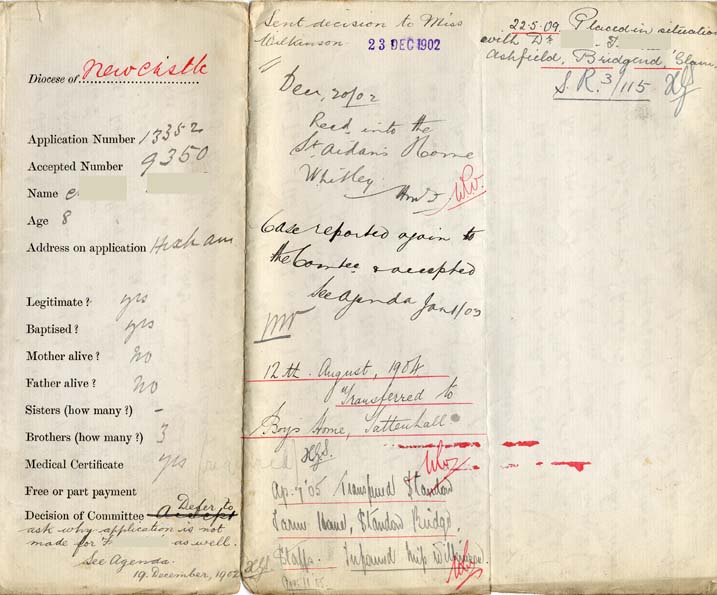 Diocese of Newcastle
Application Number 13352
Accepted Number 9350
Name
Age 8
Address on application Hexham
Legitimate? yes
Baptised? yes
Mother alive? No
Father alive? No
Sisters (how many?) -
Brothers (how many?) 3
Medical Certificate yes
Free or part payment
Decision of Committee Accept Defer to
ask why application is not
made for F as well.
See Agenda.
19. December, 1902
Sent decision to Miss
Wilkinson. 23 DEC 1902
Decr, 20/02
Recd into the
St. Aidan's Home
Whitley.
Case reported again to
the Comtee & accepted
See Agenda Jan 1/03
12th. August, 1904
Transferred to
Boys Home, Tattenhall
Ap. 7 '05 Transferred Standon
Farm Home, Standon Bridge,
Staffs. Informed Miss Wilkinson.
22-5-09. Placed in situation
with Dr T.
Ashfield, Bridgend, Glam.
S.R. 3/115